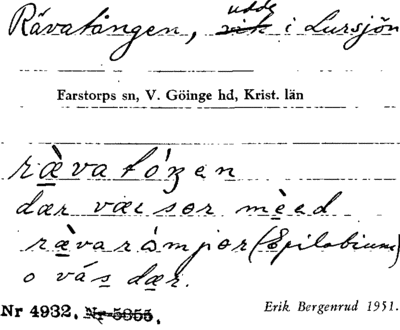 Rävatången, udde i Lursjön
Farstorps sn, V. Göinge hd, Krist. län
ræ̀va tóŋen
dær væisor mèed
rævarómpor (Epilobium)
o vás dær.
Nr 4932. Nr 5855.
Erik Bergenrud 1951.